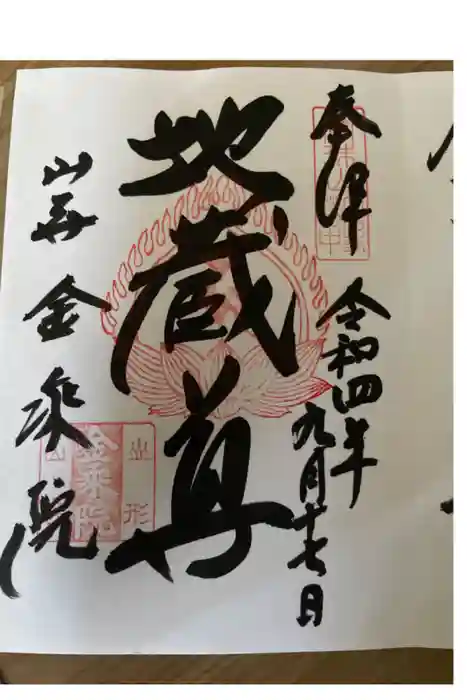 奉拝
令和四年
九月十七日
地蔵尊
山寺
金乗院
山形
金乗院